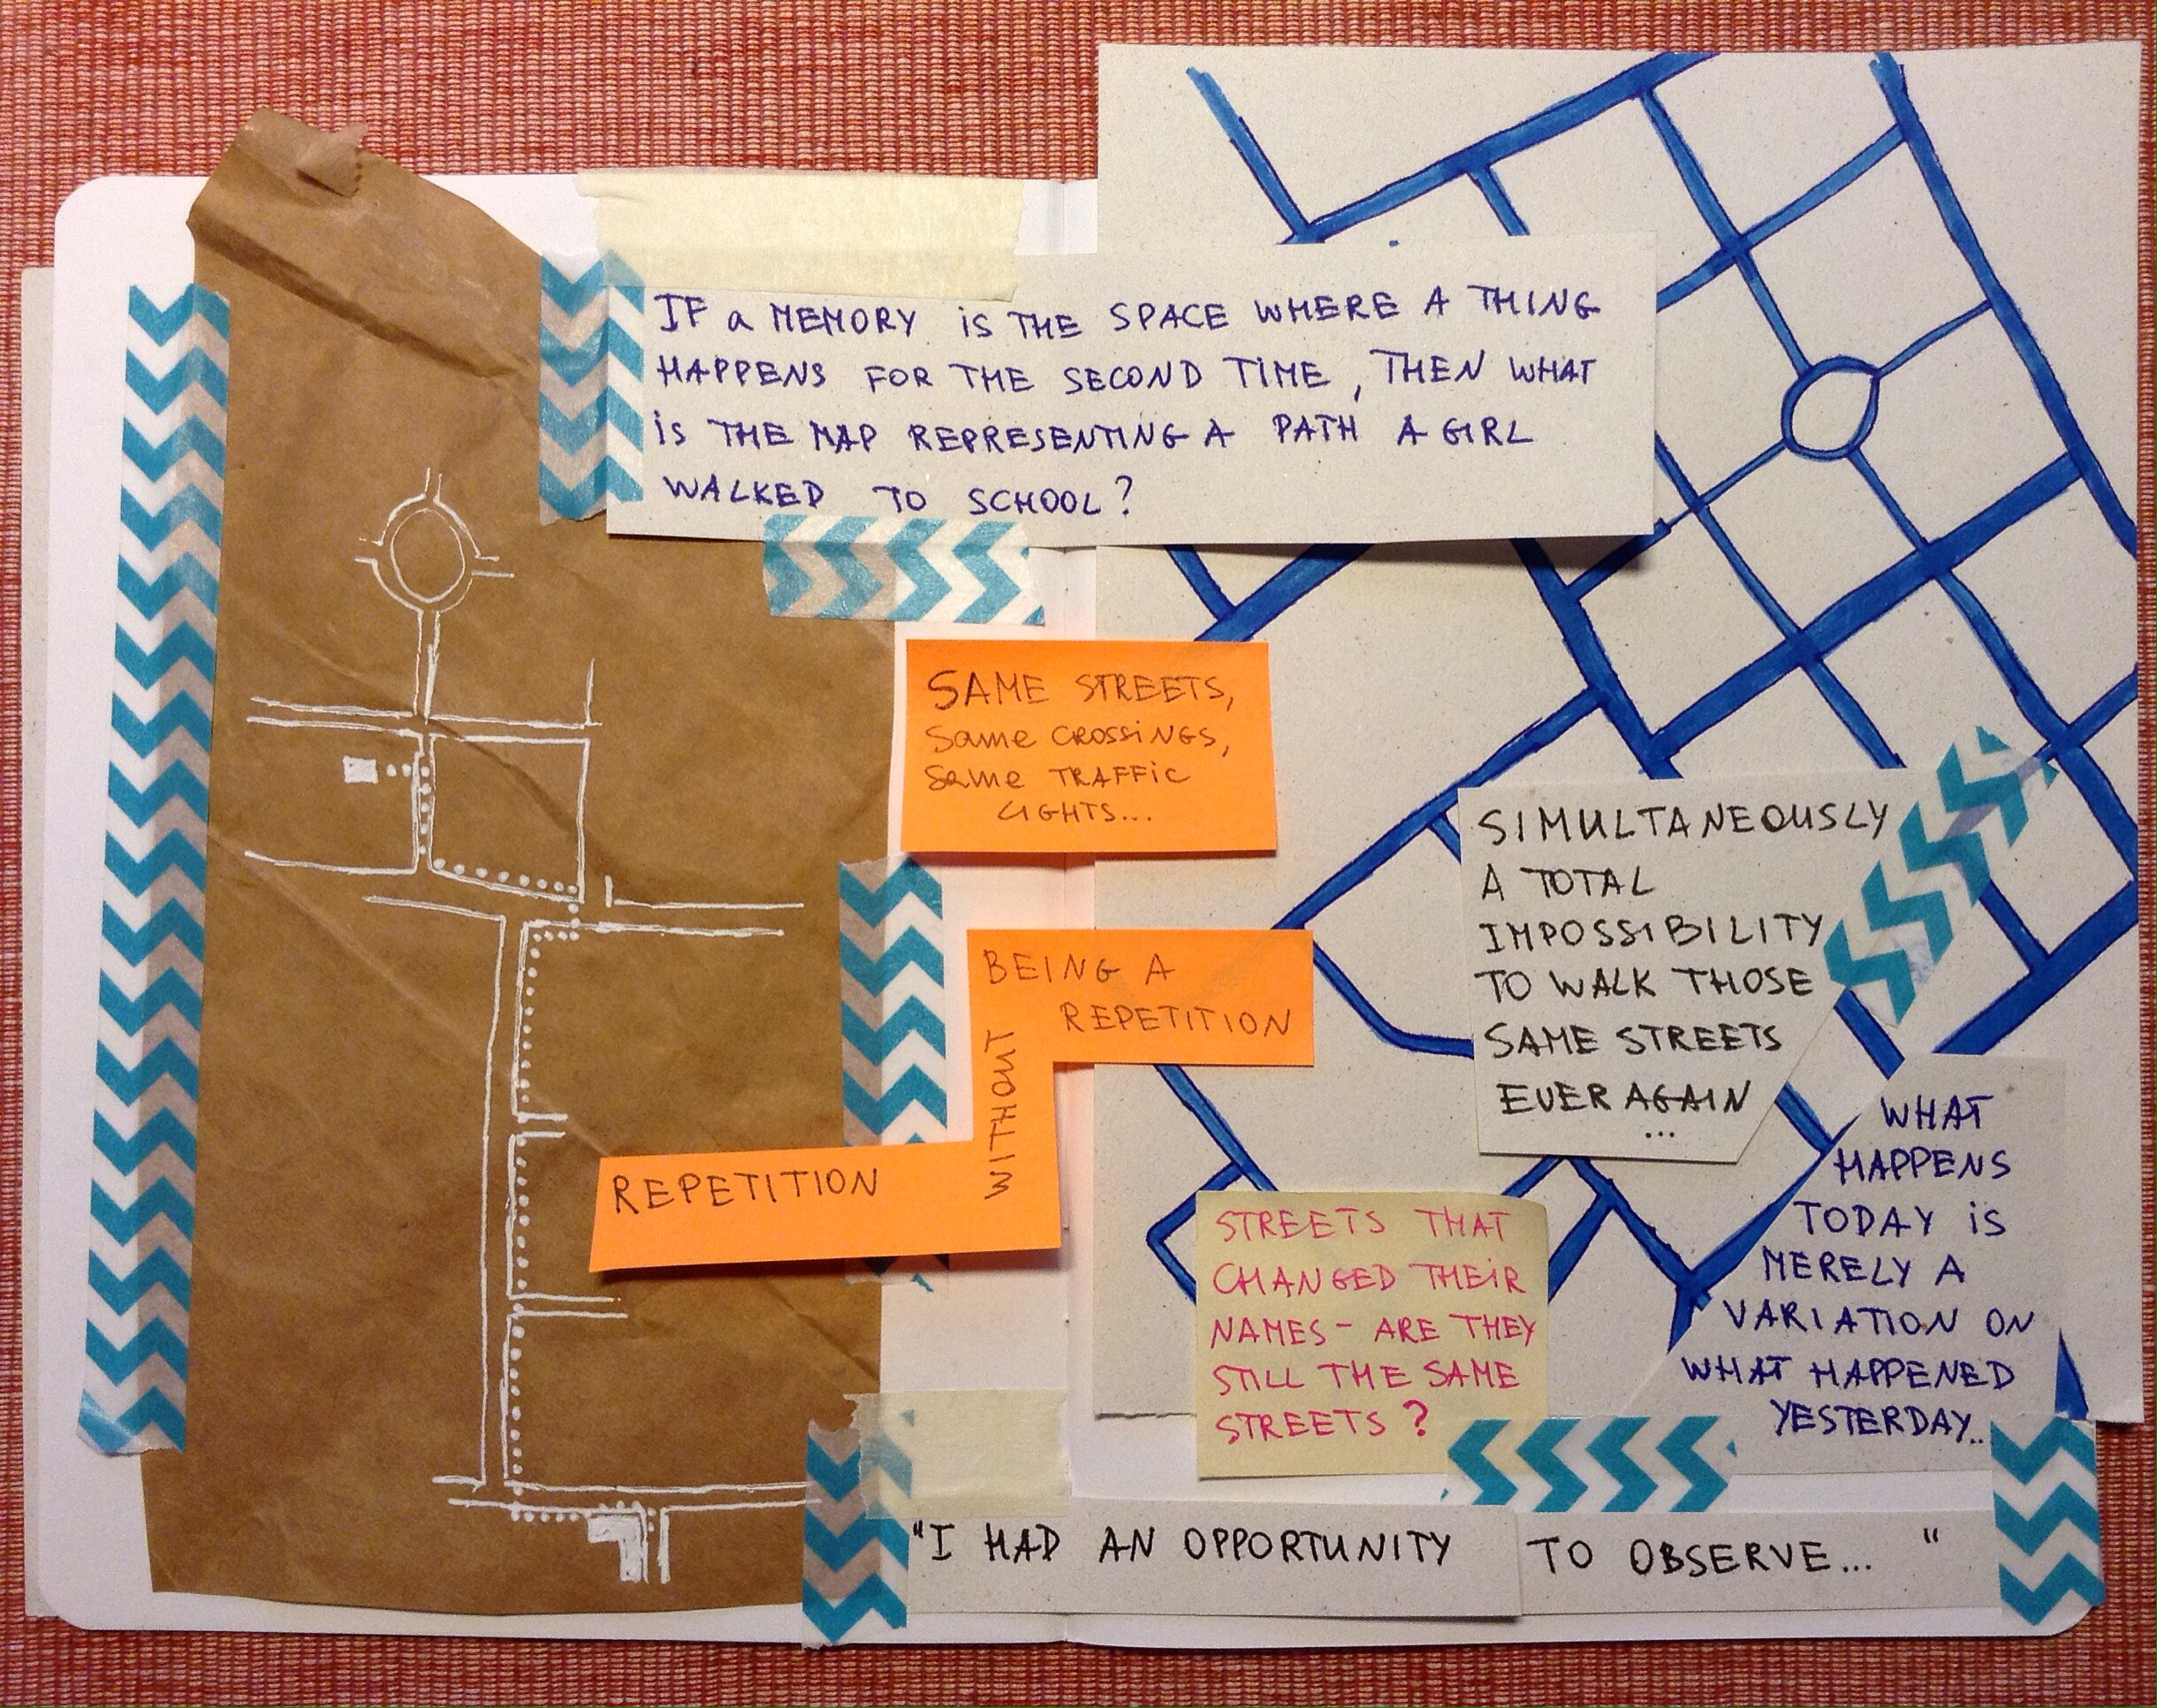 IF a MEMORY iS THE SPACE WHERE A THING
HAPPENS FOR THE SECOND TIME, THEN WHAT
iS THE MAP REPRESENTING A PATH A GIRL
WALKED TO SCHOOL?
SAME STREETS,
Same CROSSiNGS,
Same TRAFFiC
LIGHTS...
REPETITION
WITHOUT
BEING A
REPETITION
SIMULTANEOUSLY
A TOTAL
IMPOSSIBILITY
TO WALK THOSE
SAME STREETS
EVER AGAIN
...
STREETS THAT
CHANGED THEiR
NAMES - ARE THEY
STILL THE SAME
STREETS?
WHAT
HAPPENS
TODAY iS
MERELY A
VARIATION ON
WHAT HAPPENED
YESTERDAY..
"I HAD AN OPPORTUNITY TO OBSERVE... "